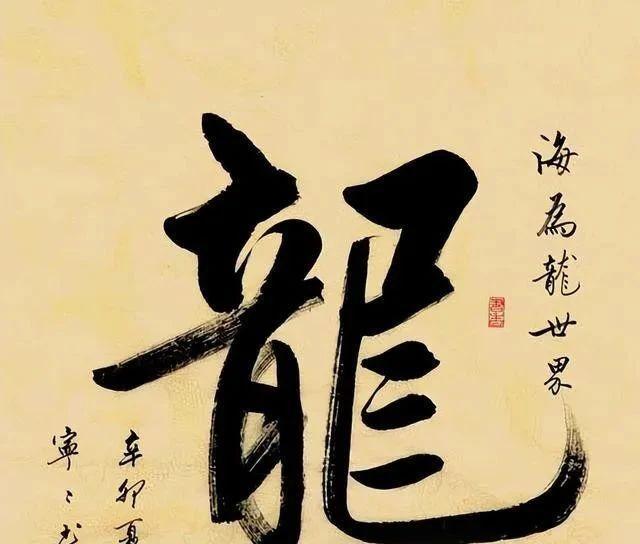 海為龍世界
龍
辛卯夏
寧〻書